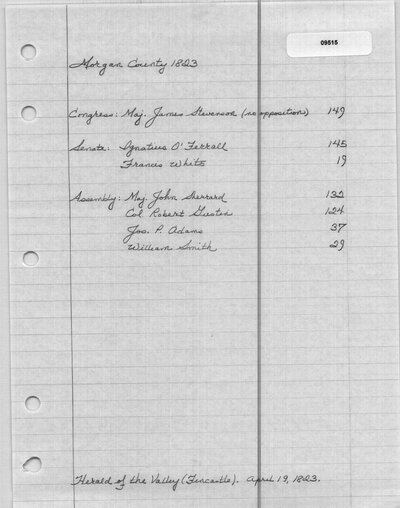 09515
Morgan County 1823
Congress: Maj. James Stevenson (no opposition) 149
Senate: Ignatius O'Ferrall 145
Francis White 19
Assembly: Maj. John Sherrard
Col. Robert Gustin 124
Jos. P. Adams 37
William Smith 29
Herald of the Valley (Fincastle). April 19, 1823.